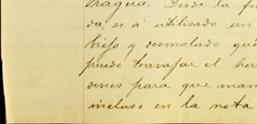 Praguá. Desde la fu
da, se á utilisado un
biejo y desmolado qué
puede travajar el her
dines para que man
incluso en la nota